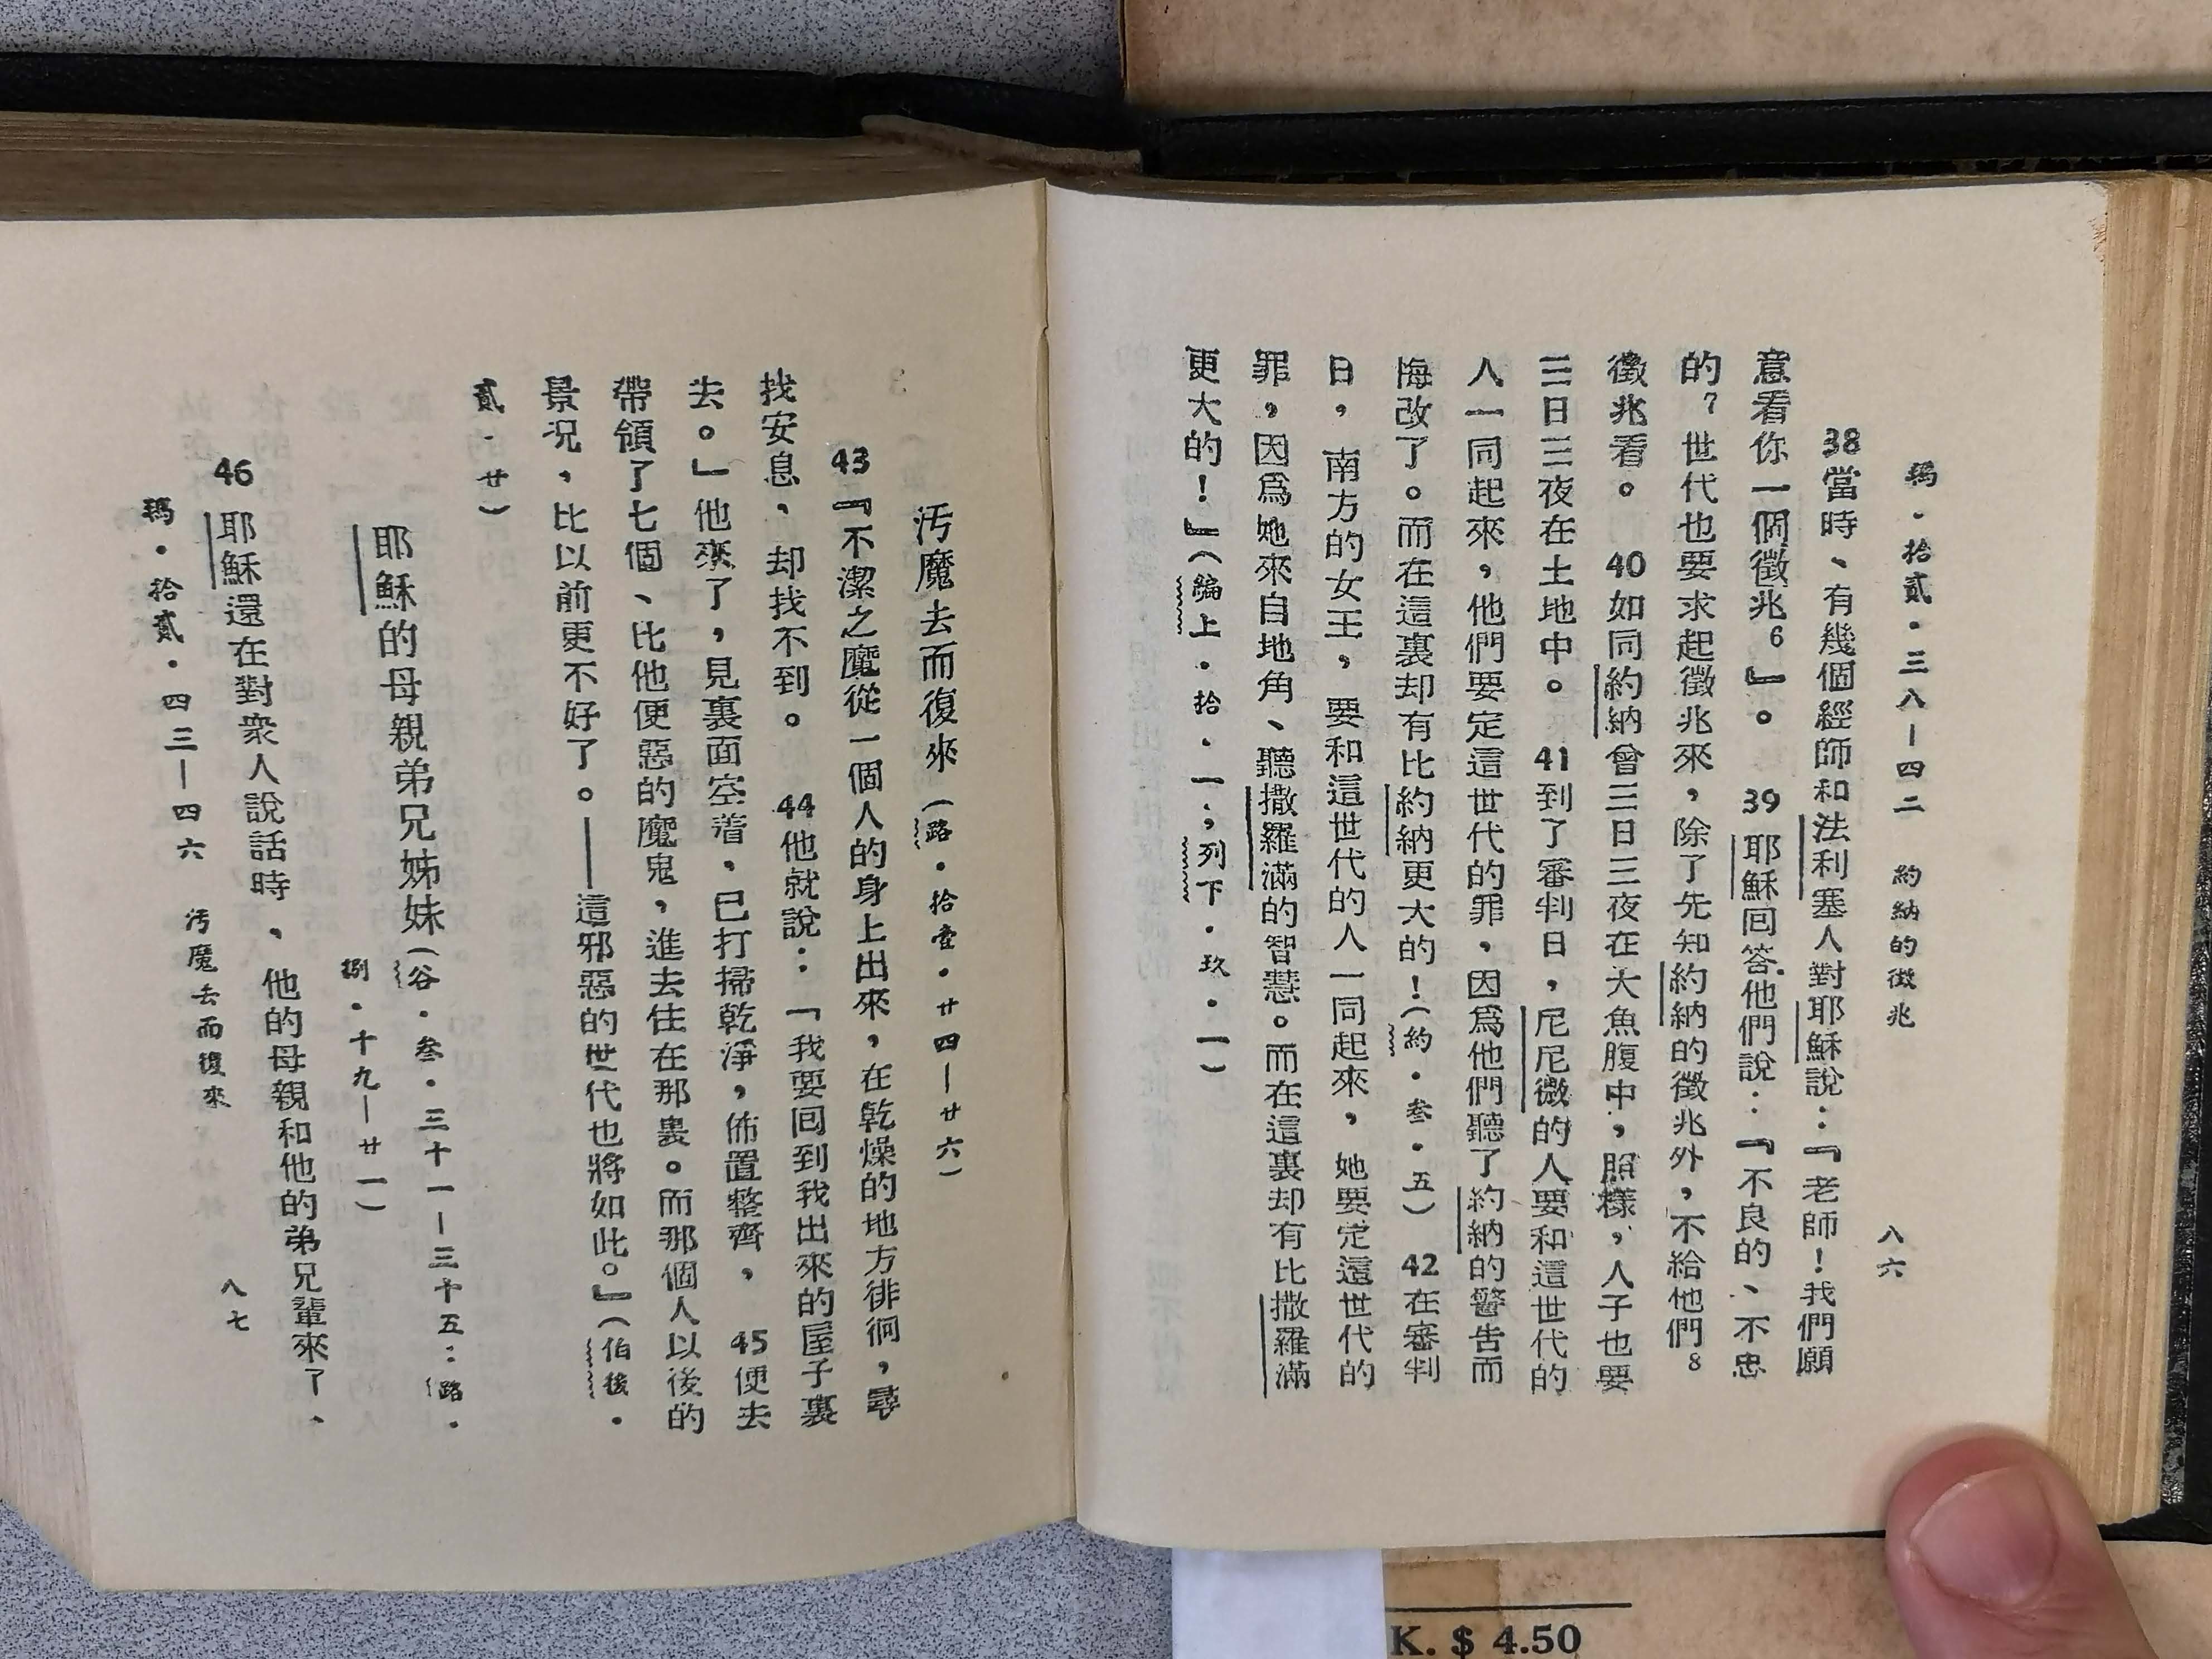 瑪．拾貳．三八—四二　約納的徵兆　八六
38當時、有幾個經師和法利塞人對耶穌說：『老師！我們願
意看你一個徵兆6』。　39耶穌回答他們說：『不良的、不忠
的7世代也要求起徵兆來，除了先知約納的徵兆外，不給他們8
徵兆看。　40如同約納曾三日三夜在大魚腹中，照樣，人子也要
三日三夜在土地中。　41到了審判日，尼尼微的人要和這世代的
人一同起來，他們要定這世代的罪，因爲他們聽了約納的警告而
悔改了。而在這裏却有比約納更大的！（約．叁．五）　42在審判
日，南方的女王，要和這世代的人一同起來，她要定這世代的
罪，因爲她來自地角、聽撒羅滿的智慧。而在這裏却有比撒羅滿
更大的！』（編上．拾．一；列下．玖．一）
汚魔去而復來（路．拾壹．廿四—廿六）
43『不潔之魔從一個人的身上出來，在乾燥的地方徘徊，尋
找安息，却找不到。　44他就說：「我要回到我出來的屋子裏
去。」他來了，見裏面空着，已打掃乾淨，佈置整齊，　45便去
帶領了七個、比他更惡的魔鬼，進去住在那裏。而那個人以後的
景況，比以前更不好了。——這邪惡的世代也將如此。』（伯後．
貳．廿）
耶穌的母親弟兄姊妹（谷．叁．三十一—三十五：路．
捌．十九—廿一）
46耶穌還在對衆人說話時、他的母親和他的弟兄輩來了、
瑪．拾貳．四三—四六　汚魔去而復來　八七
K. $ 4.50